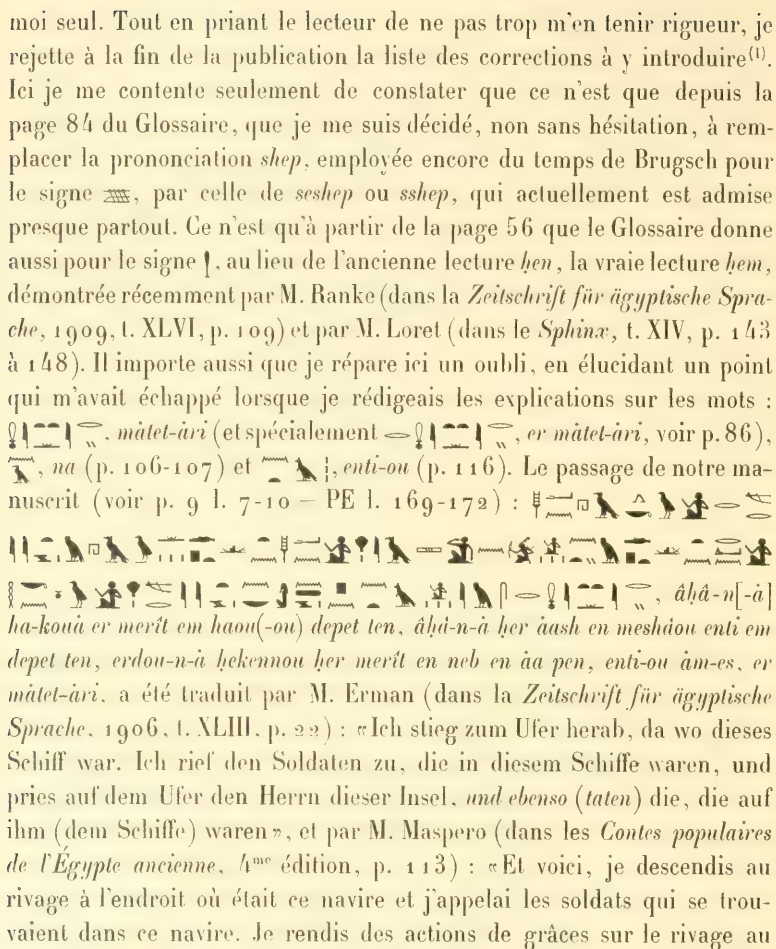 moi seul. Tout en priant le lecteur de ne pas trop m'en tenir rigueur, je
rejette à la fin de la publication la liste des corrections à y introduire(1).
Ici je me contente seulement de constater que ce n'est que depuis la
page 84 du Glossaire, que je me suis décidé, non sans hésitation, à rem-
placer la prononciation shep, employée encore du temps de Brugsch pour
le signe , par celle de seshep ou sshep, qui actuellement est admise
presque partout. Ce n'est qu'à partir de la page 56 que le Glossaire donne
aussi pour le signe , au lieu de l'ancienne lecture ḥen, la vraie lecture ḥem,
démontrée récemment par M. Ranke (dans la Zeitschrift für ägyptische Spra-
che, 1909, t. XLVI, p. 109) et par M. Loret (dans le Sphinx, t. XIV, p. 143
à 148). Il importe aussi que je répare ici un oubli, en élucidant un point
qui m'avait échappé lorsque je rédigeais les explications sur les mots :
, màtet-àri (et spécialement , er màtet-àri, voir p. 86),
, na (p. 106-107) et , enti-ou (p. 116). Le passage de notre ma-
nuscrit (voir p. 9 l. 7-10 — PE l. 169-172) :
, âḥâ-n[-à]
ha-kouà er merît em haou(-ou) depet ten, âḥâ-n-à ḥer àash en meshâou enti em
depet ten, erdou-n-à ḥekennou ḥer merît en neb en àa pen, enti-ou àm-es, er
màtet-àri, a été traduit par M. Erman (dans la Zeitschrift für ägyptische
Sprache, 1906, t. XLIII, p. 22) : «Ich stieg zum Ufer herab, da wo dieses
Schiff war. Ich rief den Soldaten zu, die in diesem Schiffe waren, und
pries auf dem Ufer den Herrn dieser Insel, und ebenso (taten) die, die auf
ihm (dem Schiffe) waren», et par M. Maspero (dans les Contes populaires
de l'Égypte ancienne, 4me édition, p. 113) : «Et voici, je descendis au
rivage à l'endroit où était ce navire et j'appelai les soldats qui se trou-
vaient dans ce navire. Je rendis des actions de grâces sur le rivage au